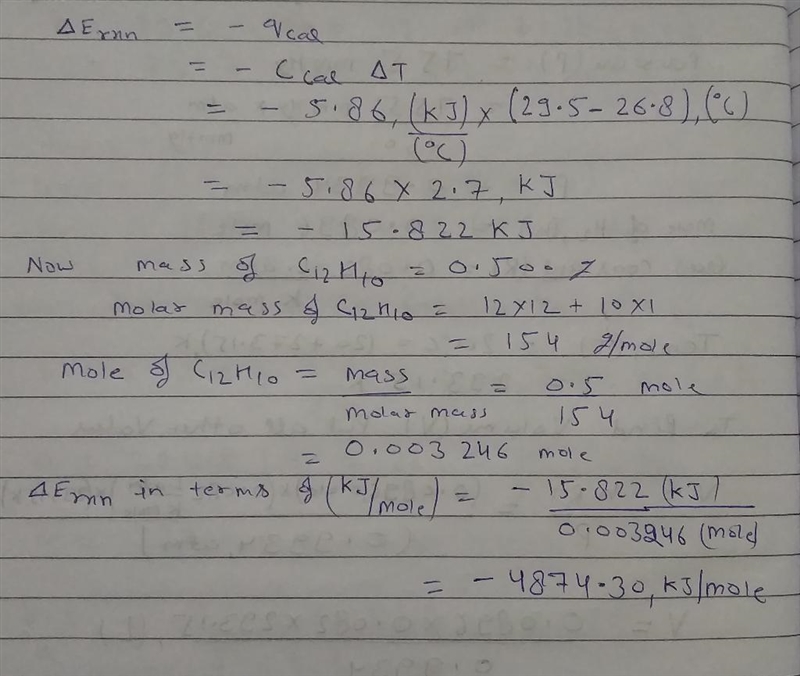 ΔErxn = - qcal
= - Ccal ΔT
= - 5.86, (KJ)/(°C) × (29.5 - 26.8), (°C)
= - 5.86 × 2.7, KJ
= - 15.822 KJ
Now mass of C12H10 = 0.500 g
Molar mass of C12H10 = 12×12 + 10×1
= 154 g/mole
Mole of C12H10 = mass/molar mass = 0.5/154 mole
= 0.003246 mole
ΔErxn in terms of (KJ/mole) = - 15.822 (KJ)/0.003246 (mole)
= - 4874.30, KJ/mole